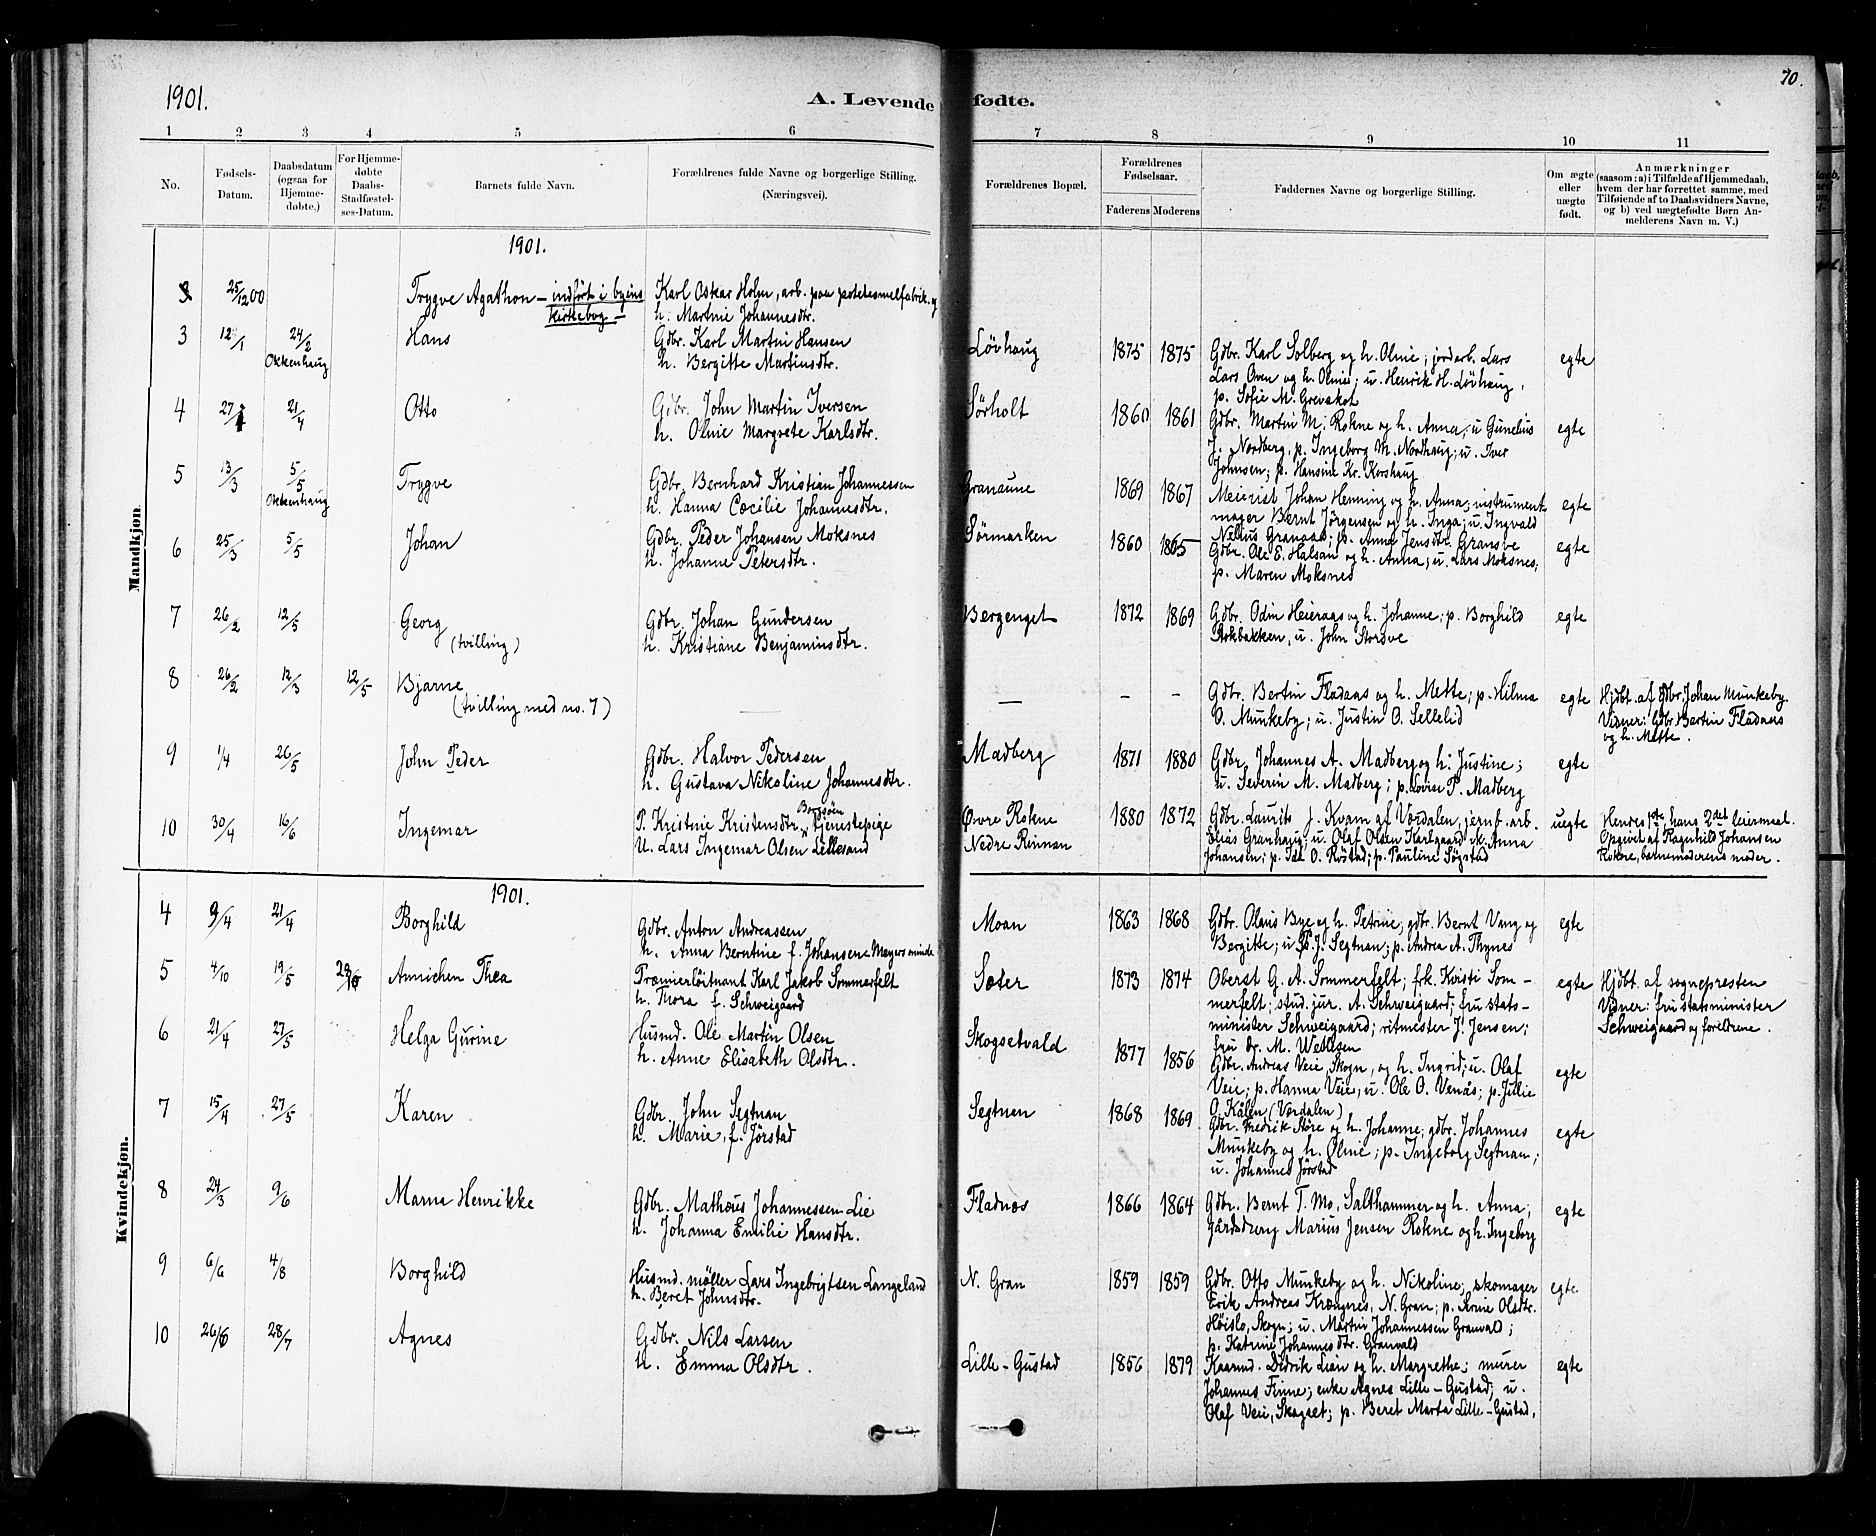 1901.
A. Levende fødte.
70.
1 2 3 4 5 6 7 8 9 10 11
No.
Fødsels-
Datum.
Daabsdatum
(ogsaa for
Hjemme-
døbte.)
For Hjemme-
døbte
Daabs-
Stadfæstel-
ses-Datum.
Barnets fulde Navn.
Forældrenes fulde Navne og borgerlige Stilling.
(Næringsvei).
Forældrenes Bopæl.
Forældrenes
Fødselsaar.
Faderens Moderens
Faddernes Navne og borgerlige Stilling.
Om ægte
eller
uægte
født.
Anmærkninger
(saasom: a) i Tilfælde af Hjemmedaab,
hvem der har forrettet samme, med
Tilføiende af to Daabsvidners Navne,
og b) ved uægtefødte Børn An-
melderens Navn m. V.)
Mandkjøn
1901.
25/12 00 Trygve Agathon – indført i byens
kirkebog –
Karl Oskar Holm, arb. paa potetesmelfabrik. og
h. Martine Johannesdtr.
3 12/1 24/2
Okkenhaug
Hans
Gdbr. Karl Martin Hansen
h. Bergitte Martinsdtr.
Løvhaug 1875 1875
Gdbr. Karl Solberg og h. Oline; jordarb. Lars
Lars Oven og h. Oline; u. Henrik H. Løvhaug,
p. Sofie M. Grevskot
egte
4 27/ 21/4 Otto
Gdbr. John Martin Iversen
h. Oline Margrete Karlsdtr.
Sørholt 1860 1861
Gdbr. Martin M. Rokne og h. Anna; u Gunelius
J. Nordberg, p. Ingeborg M. Nordhaug; u. Iver
Johnsen; p. Hansine Kr. Korshaug
egte
5 13/3 5/5
Okkenhaug
Trygve
Gdbr. Bernhard Kristian Johannessen
h. Hanna Cæcilie Johannesdtr.
Granaune 1869 1867
Meierist Johan Henning og h. Anna; instrument-
mager Bernt Jørgensen og h. Inga; u. Ingvald
Nelius Granaas; p. Anna Jensdtr. Gransve
egte
6 25/3 5/5 Johan
Gdbr. Peder Johansen Moksnes
h. Johanne Petersdtr.
Sørmarken 1860 1865
Gdbr. Ole E. Halsan og h. Anna; u. Lars Moksnes;
p. Maren Moksnes
egte
7 26/2 12/5 Georg
(tvilling)
Gdbr. Johan Gundersen
h. Kristiane Benjaminsdtr.
Bergenget 1872 1869
Gdbr. Odin Heieraas og h. Johanne; p. Borghild
Stokbakken, u. John Storsve
egte
8 26/2 12/3 12/5 Bjarne
(tvilling med no. 7)
— — – –
Gdbr. Bertin Fladaas og h. Mette; p. Hilma
O. Munkeby; u. Justin O. Sellelid
egte
Hjdbt. af gdbr. Johan Munkeby
Vidner: Gdbr. Bertin Fladaas
og h. Mette.
9 1/4 26/5 John Peder
Gdbr. Halvor Pedersen
h. Gustava Nikoline Johannesdtr.
Madberg 1871 1880
Gdbr. Johannes A. Madberg og h. Justine;
u. Severin M. Madberg; p. Lovise P. Madberg
egte
10 30/4 16/6 Ingemar
P. Kristine Kristensdtr. Borgsöen tjenestepige
U. Lars Ingemar Olsen Lillesand
Øvre Rokne
Nedre Rinnan
1880 1872
Gdbr. Laurits J. Kvam af Værdalen, jernb. arb.
Elias Granhaug; u. Olaf Olsen Karlgaard; Anna
Johansen; p. Ida O. Rostad; p. Pauline Søgstad
uegte
Hendes 1ste hans 2det leiermaal.
Opgivet af Ragnhild Johansen
Rokne, barnemoderens moder.
Kvindekjøn.
1901.
4 9/4 21/4 Borghild
Gdbr. Anton Andreassen
h. Anna Berntine f. Johansen Meyersminde
Moan 1863 1868
Gdbr. Olaus Bye og h. Petrine; gdbr. Bernt Vang og
Bergitte; u. P. J. Segtnan; p. Andrea A. Thynes
egte
5 4/10 19/5 Annichen Thea
Præmierløitnant Karl Jakob Sommerfelt
h. Thora f. Schweigaard
Sæter 1873 1874
Oberst G. A. Sommerfelt; frk. Kirsti Som-
merfelt; stud. jur. A. Schweigaard; fru stats-
minister Schweigaard; ritmester J. Jensen;
fru dr. M. Wettesen
egte
Hjdbt. af sognepresten
Vidner: fru statsminister
Schweigaard og foreldrene.
6 21/4 27/5 Helga Gurine
Husmd. Ole Martin Olsen
h. Anne Elisabeth Olsdtr.
Skogsetvald 1877 1856
Gdbr. Andreas Veie, Skogn, og h. Ingrid; u. Olaf
Veie; p. Hanna Veie; u. Ole O. Venås; p. Julie
O. Kålen (Værdalen)
egte
7 15/4 27/5 Karen
Gdbr. John Segtnan
h. Marie, f. Jørstad
Segtnan 1868 1869
Gdbr. Fredrik Støre og h. Johanne; gdbr. Johannes
Munkeby og h. Oline; p. Ingeborg Segtnan;
u. Johannes Jørstad
egte
8 24/3 9/6 Marna Henrikke
Gdbr. Mathæus Johannessen Lie
h. Johanna Emilie Hansdtr.
Fladnæs 1866 1864
Gdbr. Bernt T. Mo, Salthammer og h. Anna;
gårdsdreng Marius Jensen Rokne og h. Ingeborg
egte
9 6/6 4/8 Borghild
Husmd. møller Lars Ingebrigtsen Langeland
h. Beret Johnsdtr.
N. Gran 1859 1859
Gdbr. Otto Munkeby og h. Nikoline; skomager
Erik Andreas Krægnes, N. Gran; p. Arnie Olsdtr.
Høislo, Skogn; u. Martin Johannessen Granvald;
p. Katrine Johannesdtr. Granvald
egte.
10 26/6 28/7 Agnes
Gdbr. Nils Larsen
h. Emma Olsdtr.
Lille-Gustad 1856 1879
Kaarmd. Didrik Lian og h. Margrethe; murer
Johannes Finne; enke Agnes Lille-Gustad; u.
Olaf Veie, Skogset; p. Beret Marta Lille-Gustad.
egte